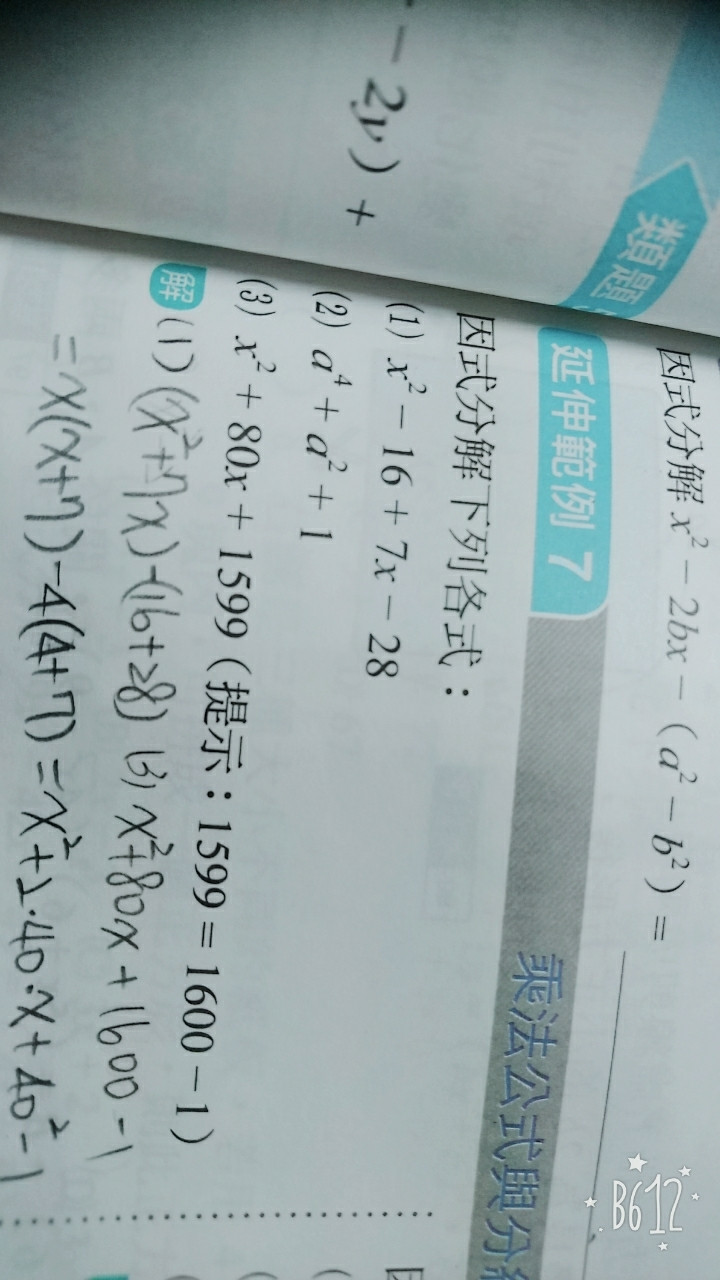 - 2y) +
類題
因式分解 x² - 2bx - (a² - b²) =
延伸範例 7
乘法公式與分
因式分解下列各式：
(1) x² - 16 + 7x - 28
(2) a⁴ + a² + 1
(3) x² + 80x + 1599 (提示：1599 = 1600 - 1)
解 (1) (x²+7x)-(16+28) (3) x²+80x+1600-1
=x(x+7)-4(4+7) =x²+2·40·x+40²-1
B612